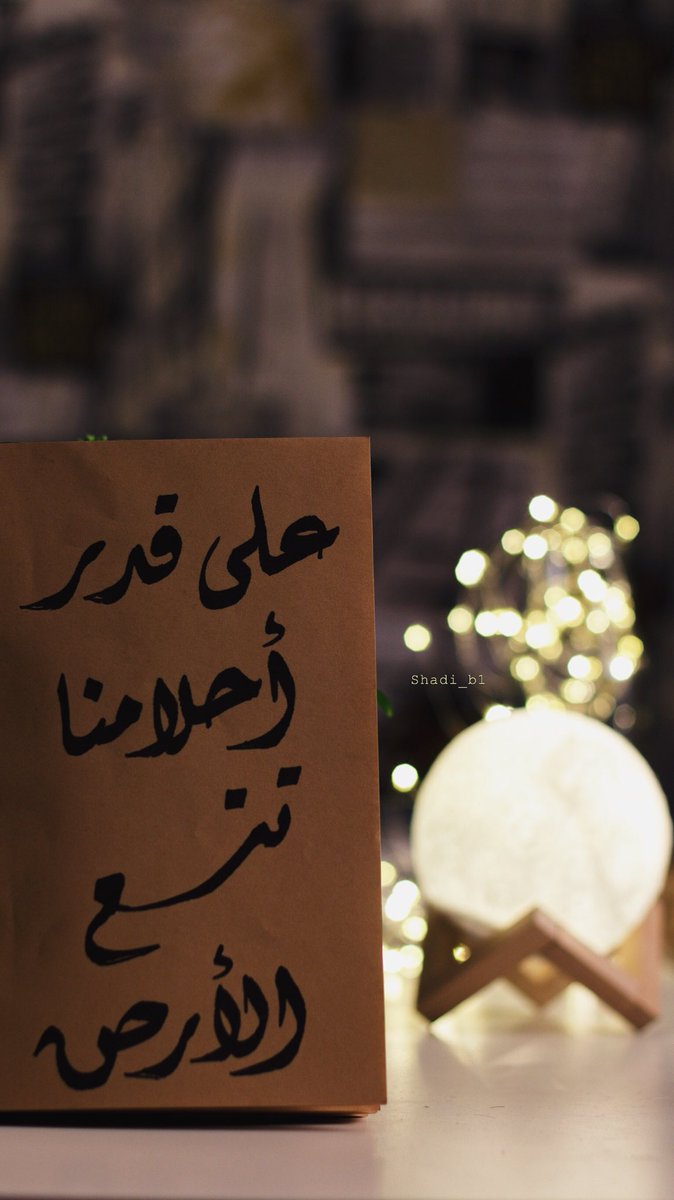 على قدر
أحلامنا
تتسع
الأرض
Shadi_b1